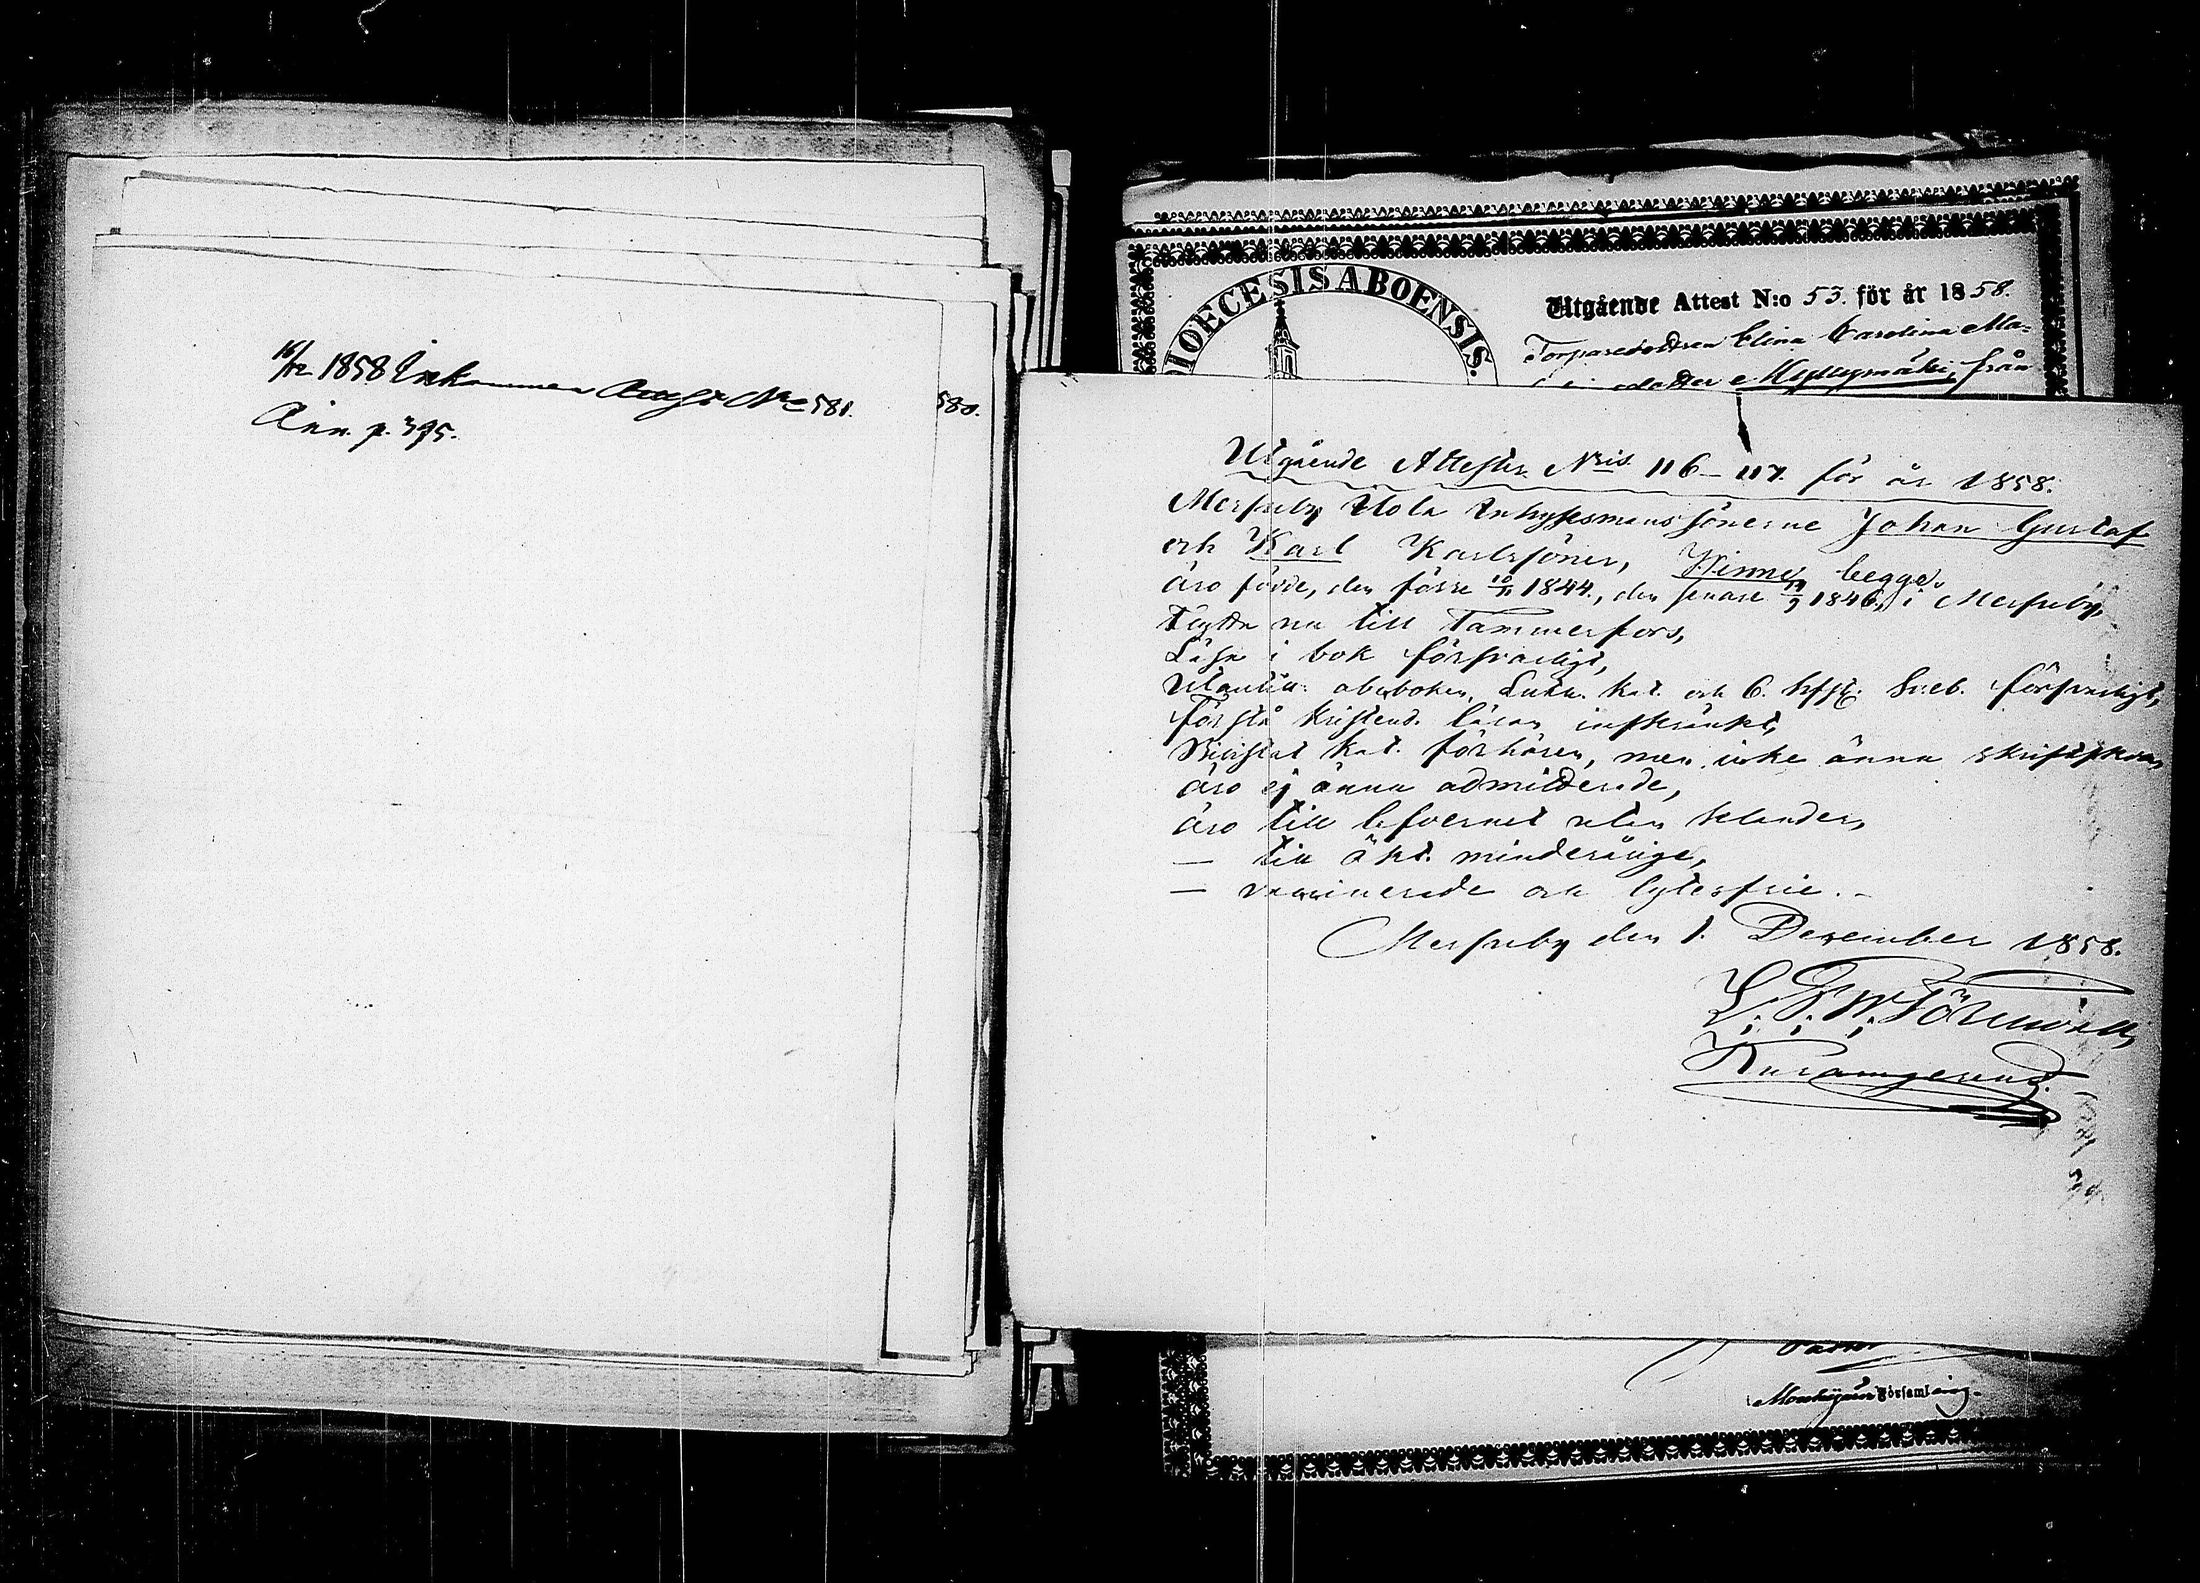 16/12 1858 Inkommen Attest No 581.
Ainn. p. 395.
580.
DIOECESIS ABOENSIS.
Utgående Attest N:o 53. för år 1858.
Torparedottren Elina Carolina Ma-
Myllymäki, från
Utgående Attester Nris 116–117. för år 1858.
Merfreby Uola Inhysesmans sönerne Johan Gustaf
och Karl Karlssöner, Kinne, begge
äro födde, den förre 10/11 1844., den senare 14/9 1846, i Merfreby,
Flytta nu till Tammerfors,
Läsa i bok försvarligt,
Utantill abcboken, Luth. Kat. och 6. hfst. Sveb. försvarligt,
förstå kristend. läran inskränkt,
Bivistat Kat. förhören, men icke ännu skriftskola,
äro ej ännu admitterade,
äro till lefvernet utan klander,
— till äkt. minderårige,
— vaccinerade och lytesfrie. –
Merfreby den 1. December 1858.
L. T. W. Törnwall,
K. adjungerad.
Pastor
Mouhijärvi Församling.